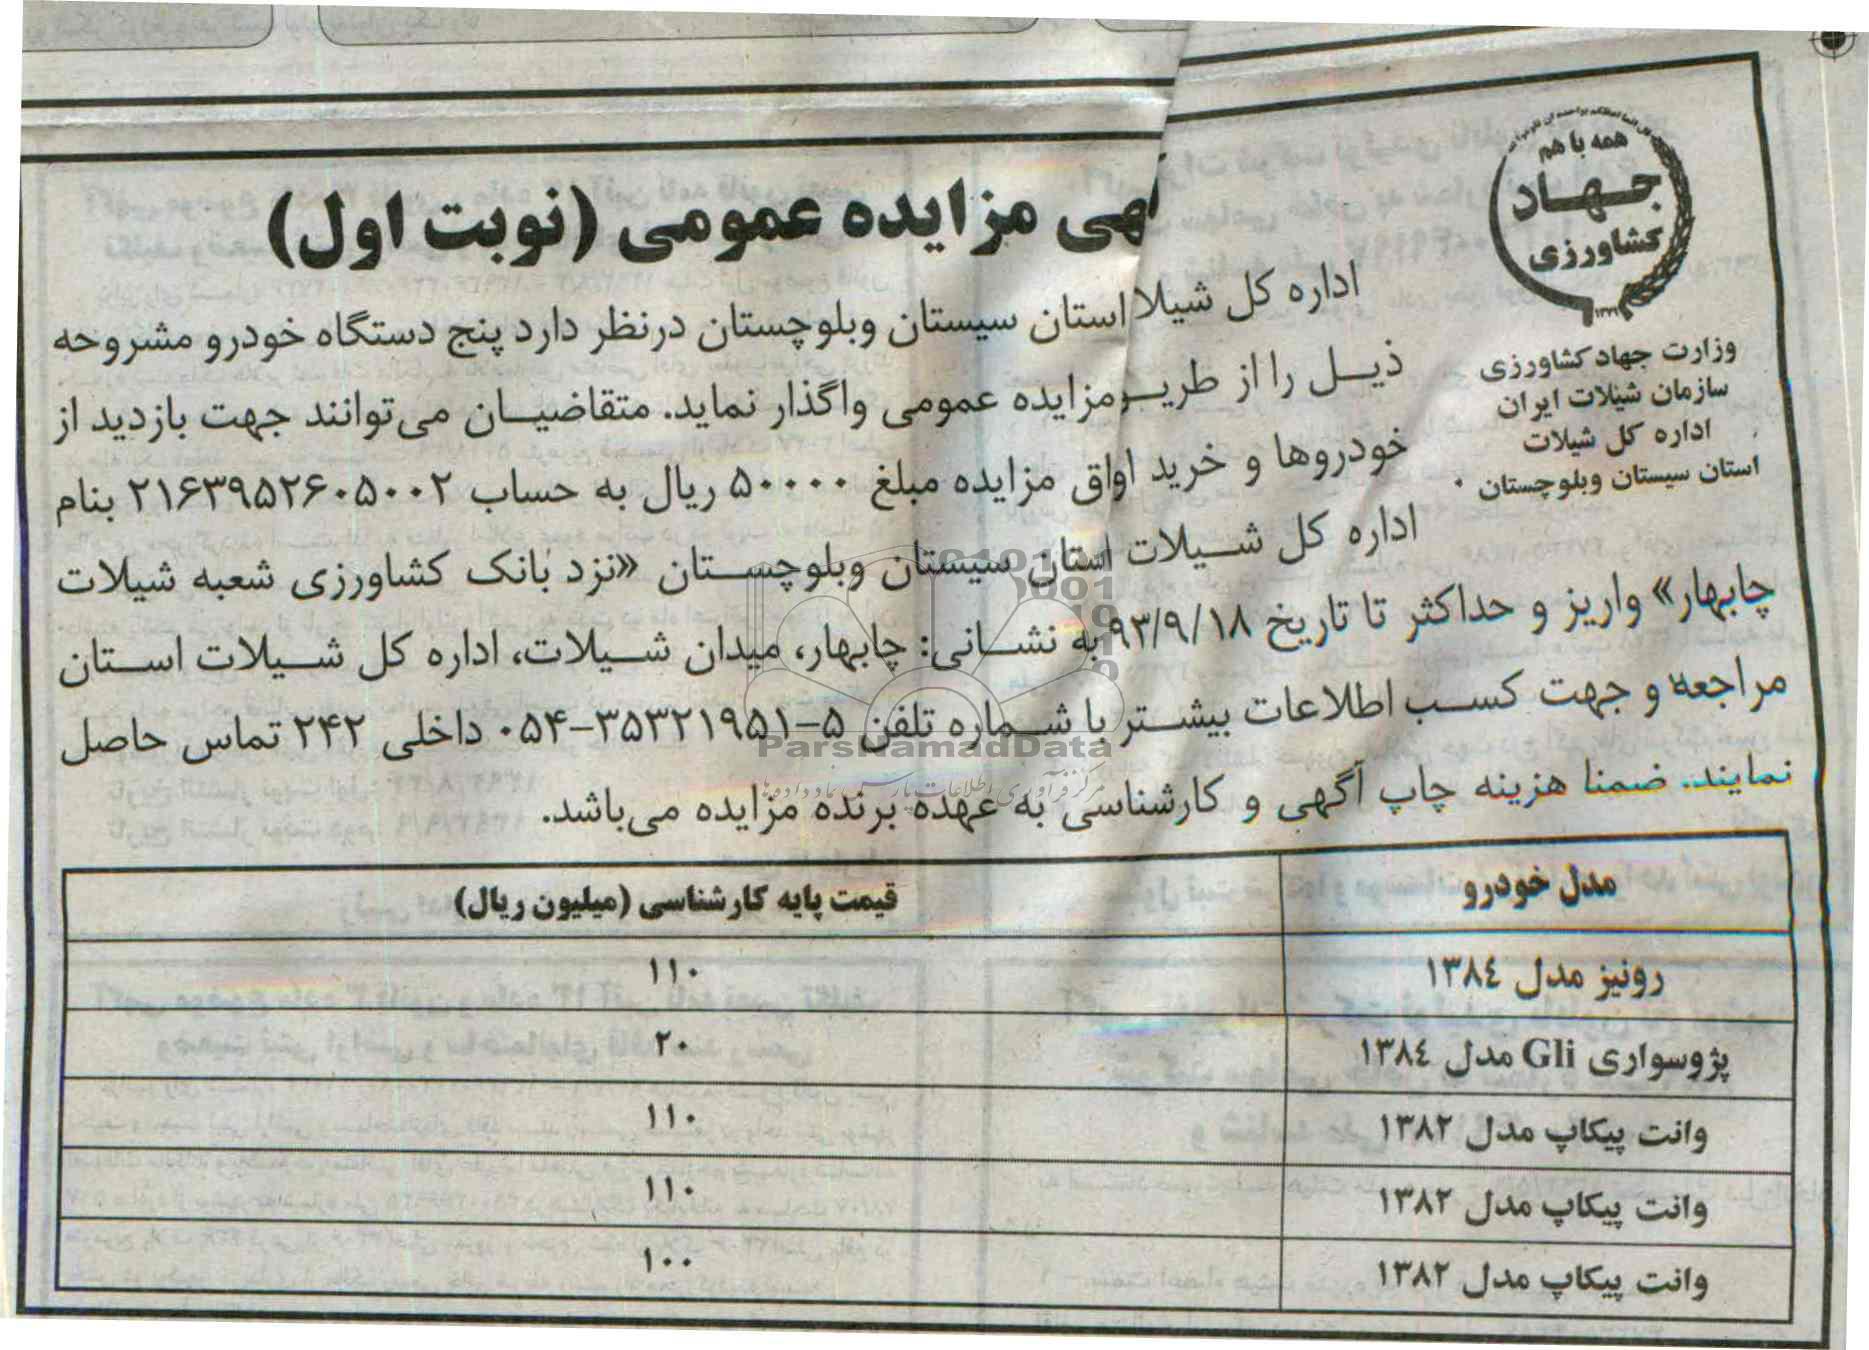 همه با هم
جهاد
کشاورزی
وزارت جهاد کشاورزی
سازمان شیلات ایران
اداره کل شیلات
استان سیستان وبلوچستان
گهی مزایده عمومی (نوبت اول)
اداره کل شیلا استان سیستان وبلوچستان درنظر دارد پنج دستگاه خودرو مشروحه
ذیل را از طریـ مزایده عمومی واگذار نماید. متقاضیان می‌توانند جهت بازدید از
خودروها و خرید اواق مزایده مبلغ ۵۰۰۰۰ ریال به حساب ۲۱۶۳۹۵۲۶۰۵۰۰۲ بنام
اداره کل شیلات استان سیستان وبلوچستان «نزد بانک کشاورزی شعبه شیلات
چابهار» واریز و حداکثر تا تاریخ ۹۳/۹/۱۸ به نشانی: چابهار، میدان شیلات، اداره کل شیلات استان
مراجعه و جهت کسب اطلاعات بیشتر با شماره تلفن ۵-۳۵۳۲۱۹۵۱-۰۵۴ داخلی ۲۴۲ تماس حاصل
نمایند. ضمنا هزینه چاپ آگهی و کارشناسی به عهده برنده مزایده می‌باشد.
ParsNamadData
مرکز فرآوری اطلاعات پارس نماد داده ها
مدل خودرو قیمت پایه کارشناسی (میلیون ریال)
رونیز مدل ۱۳۸۴ ۱۱۰
پژوسواری Gli مدل ۱۳۸۴ ۲۰
وانت پیکاپ مدل ۱۳۸۲ ۱۱۰
وانت پیکاپ مدل ۱۳۸۲ ۱۱۰
وانت پیکاپ مدل ۱۳۸۲ ۱۰۰